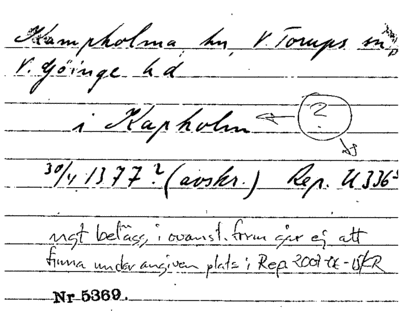 Kampholma, hn, V. Torups sn,
V. Göinge hd
i Kapholm ?
30/4 1377? (avskr.) Rep. U 336
ngt belägg i ovanst. form går ej att
finna under angiven plats i Rep 2007-06-15/KR
Nr 5369.